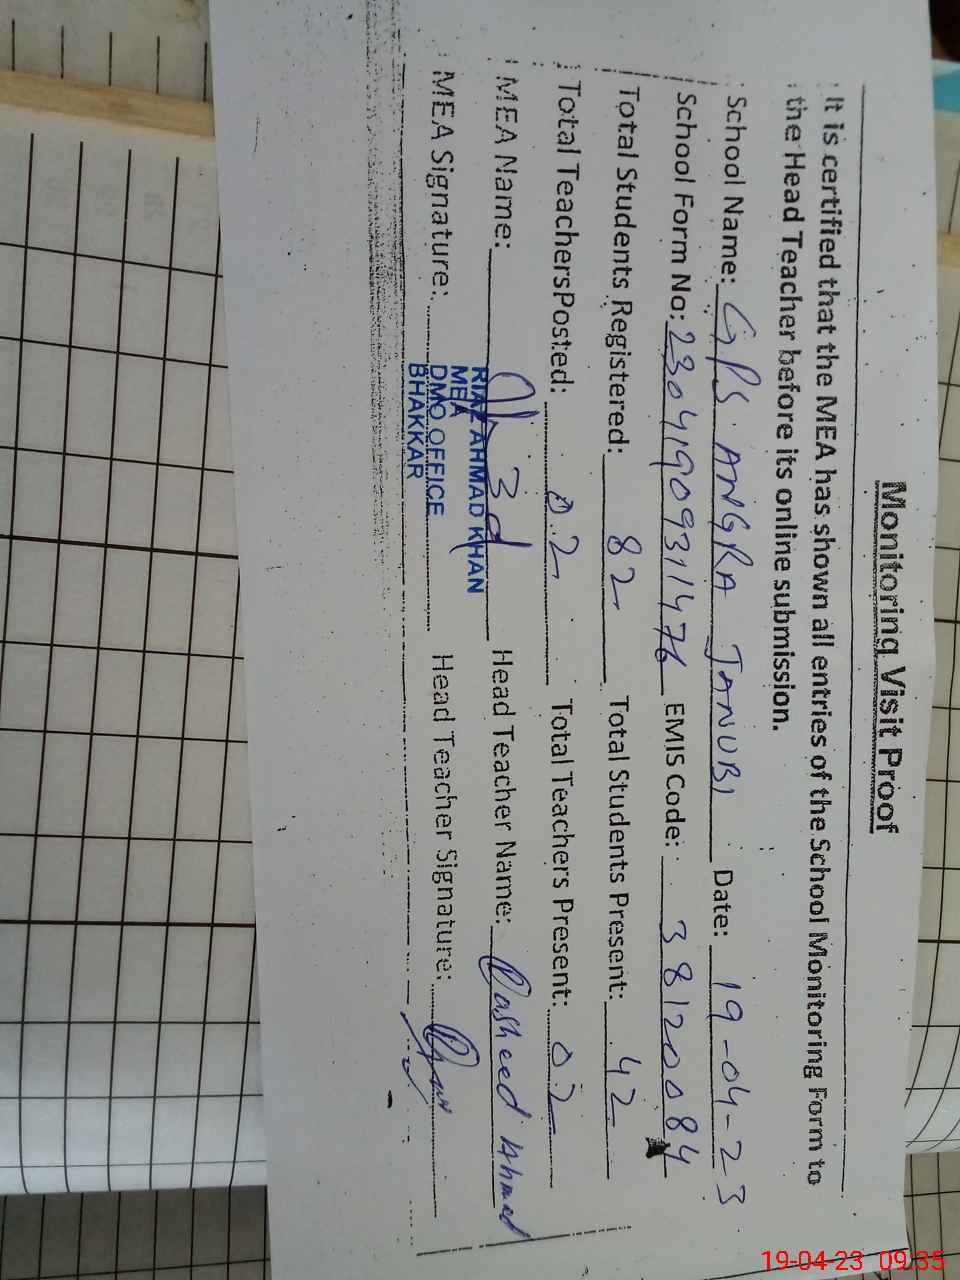 Monitoring Visit Proof
It is certified that the MEA has shown all entries of the School Monitoring Form to
the Head Teacher before its online submission.
School Name: GPS ANGRA JANUBI Date: 19-04-23
School Form No: 23041909311476 EMIS Code: 38120084
Total Students Registered: 82 Total Students Present: 42
Total TeachersPosted: 02 Total Teachers Present: 02
MEA Name: Head Teacher Name: Rasheed Ahmad
RIAZ AHMAD KHAN
MEA
MEA Signature: Head Teacher Signature:
DMO OFFICE
BHAKKAR
19-04-23 09:35